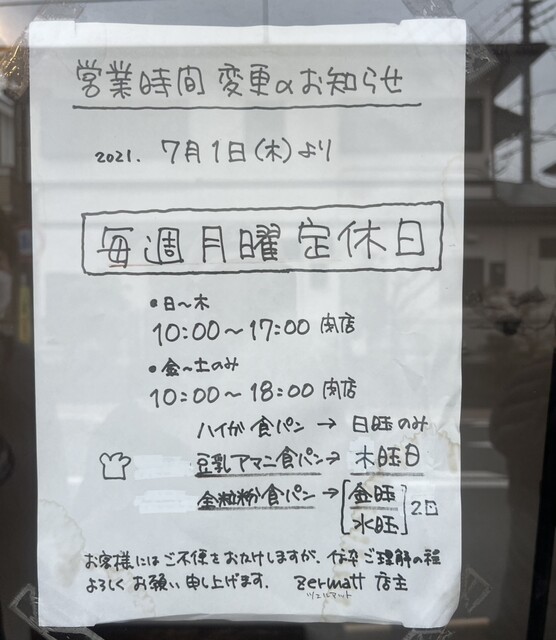 営業時間 変更のお知らせ
2021. 7月1日(木)より
毎週月曜定休日
・日〜木
10:00〜17:00 閉店
・金〜土のみ
10:00〜18:00 閉店
ハイガ食パン → 日旺のみ
豆乳アマニ食パン→ 木旺日
全粒粉食パン→ 金旺 水旺 2日
お客様にはご不便をおかけしますが、何卒ご理解の程
よろしくお願い申し上げます. Zermatt 店主
ツェルマット